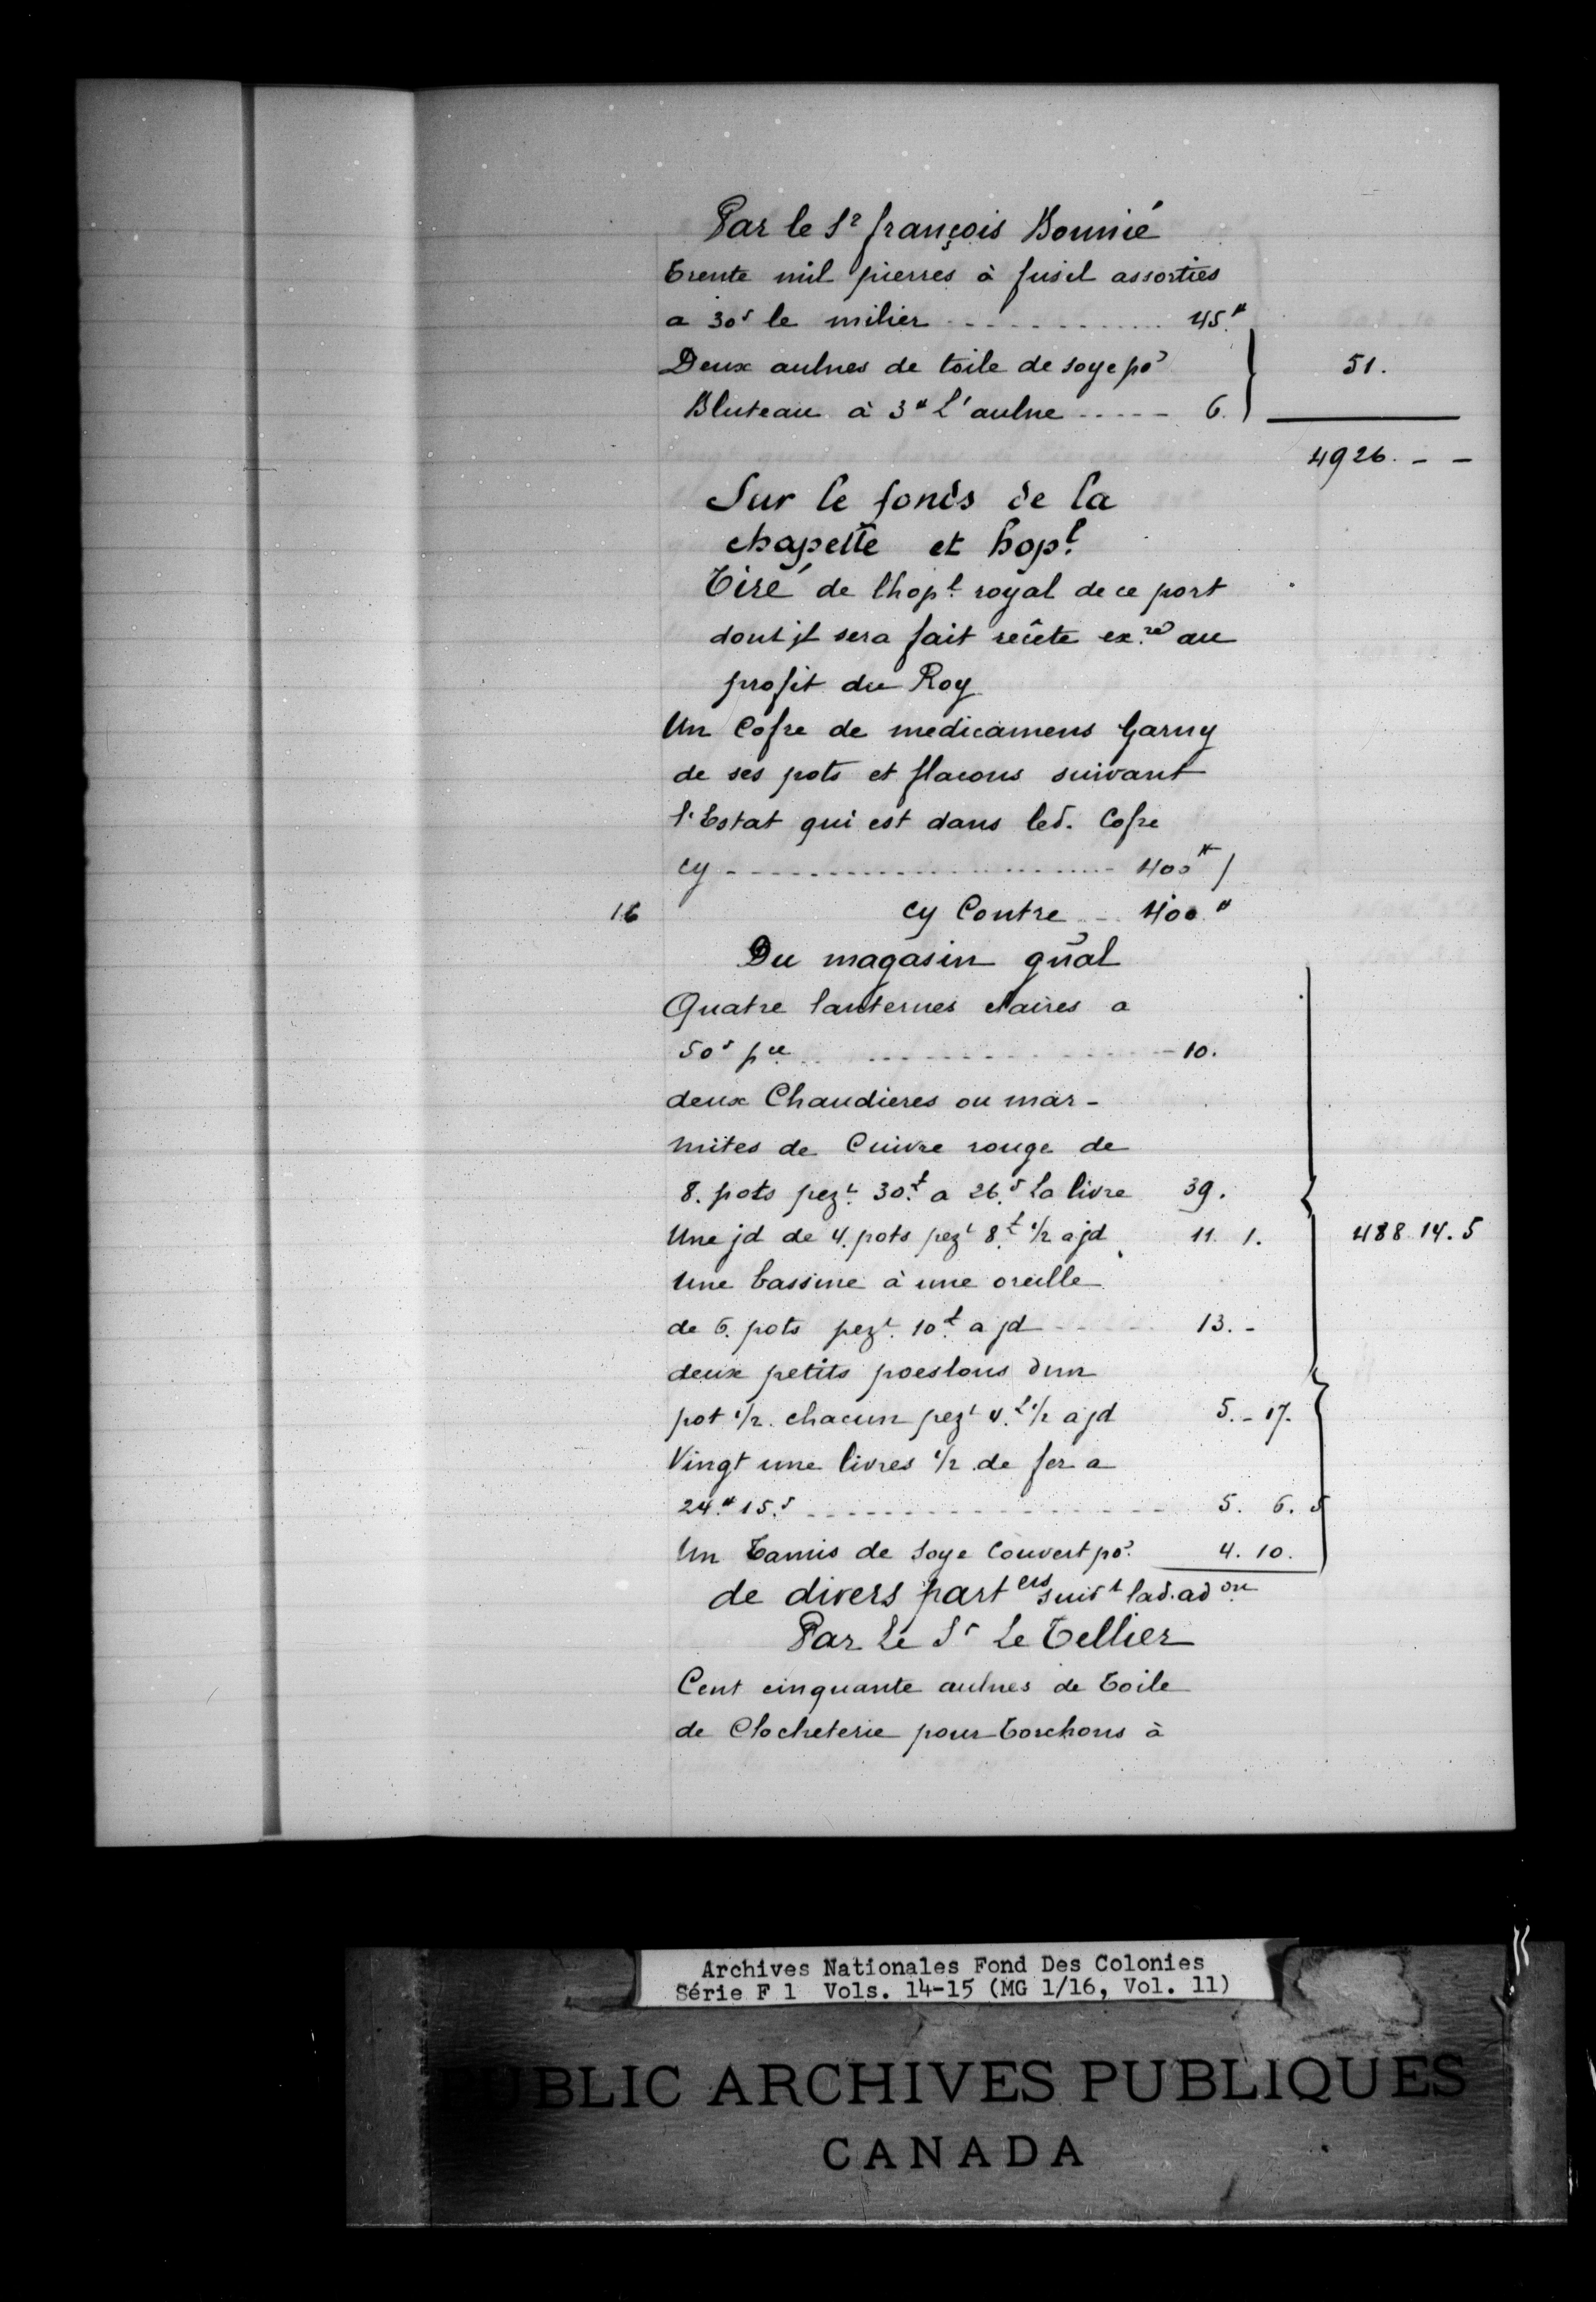 Par le Sr françois Bounié
Trente mil pierres à fusil assorties
a 30s le milier ............ 45.#
Deux aulnes de toile de soye po 51.
Bluteau à 3# L'aulne ..... 6.
4926. - -
Sur le fonds de la
chapelle et hopl.
Tiré de lhopl royal de ce port
dont jl sera fait recête ex.re au
profit du Roy
Un Cofre de medicamens Garny
de ses pots et flacons suivant
l'Estat qui est dans led. Cofre
cy ........................ 400#
16 cy Contre .. 400.#
Du magasin gñal
Quatre lanternes claires a
50s pce .................. 10.
deux Chaudieres ou mar-
mites de Cuivre rouge de
8. pots pezt. 30.l a 26.s La livre 39.
Une jd de 4. pots pezt 8.l 1/2 a jd 11. 1. 488. 14. 5
Une bassine à une oreille
de 6. pots pezt. 10.l a jd ..... 13. -
deux petits poeslons dun
pot 1/2. chacun pezt 4.l 1/2 a jd 5. - 17.
Vingt une livres 1/2 de fer a
24.# 15.s .................. 5. 6. 5
Un Tamis de Soye Couvert po. 4. 10.
de divers parters suivt lad. adon
Par Le Sr Le Tellier
Cent cinquante aulnes de Toile
de Clocheterie pour Torchons à
Archives Nationales Fond Des Colonies
Série F 1 Vols. 14-15 (MG 1/16, Vol. 11)
PUBLIC ARCHIVES PUBLIQUES
CANADA